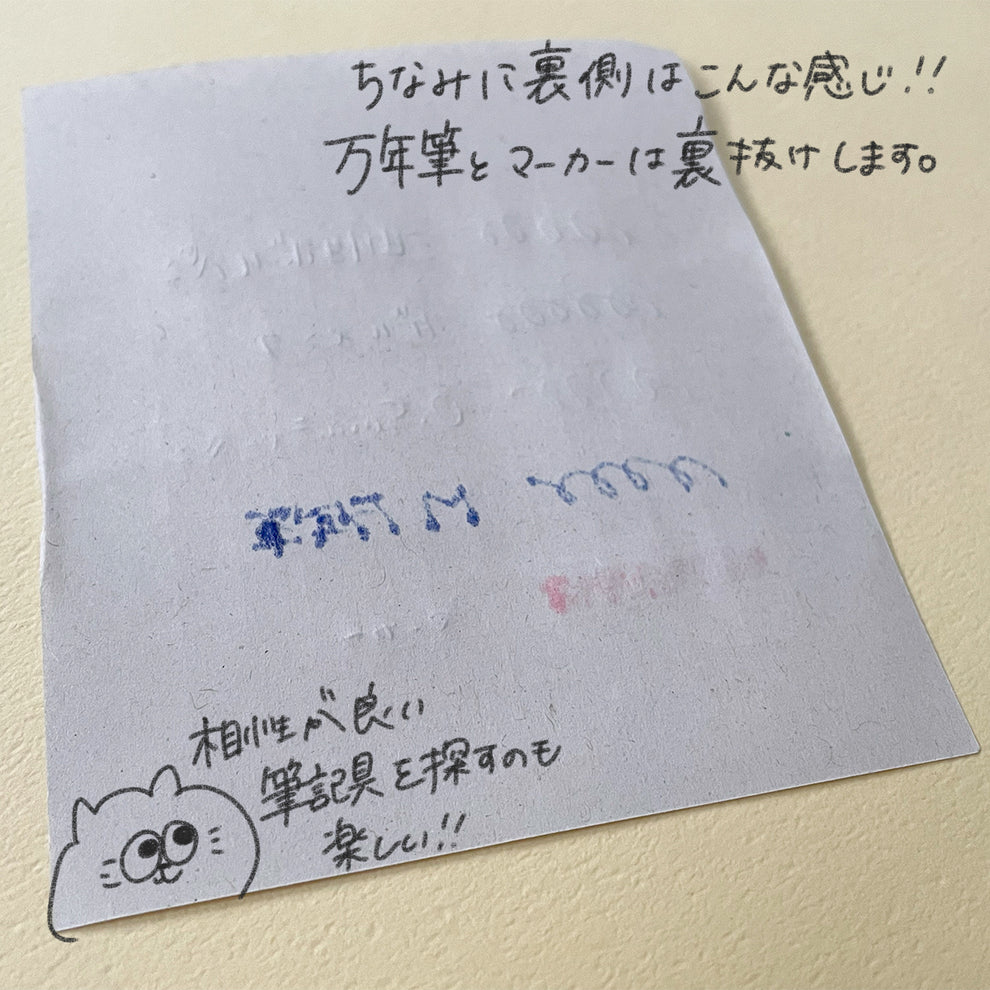 ちなみに裏側はこんな感じ!!
万年筆とマーカーは裏抜けします。
相性が良い
筆記具を探すのも
楽しい!!